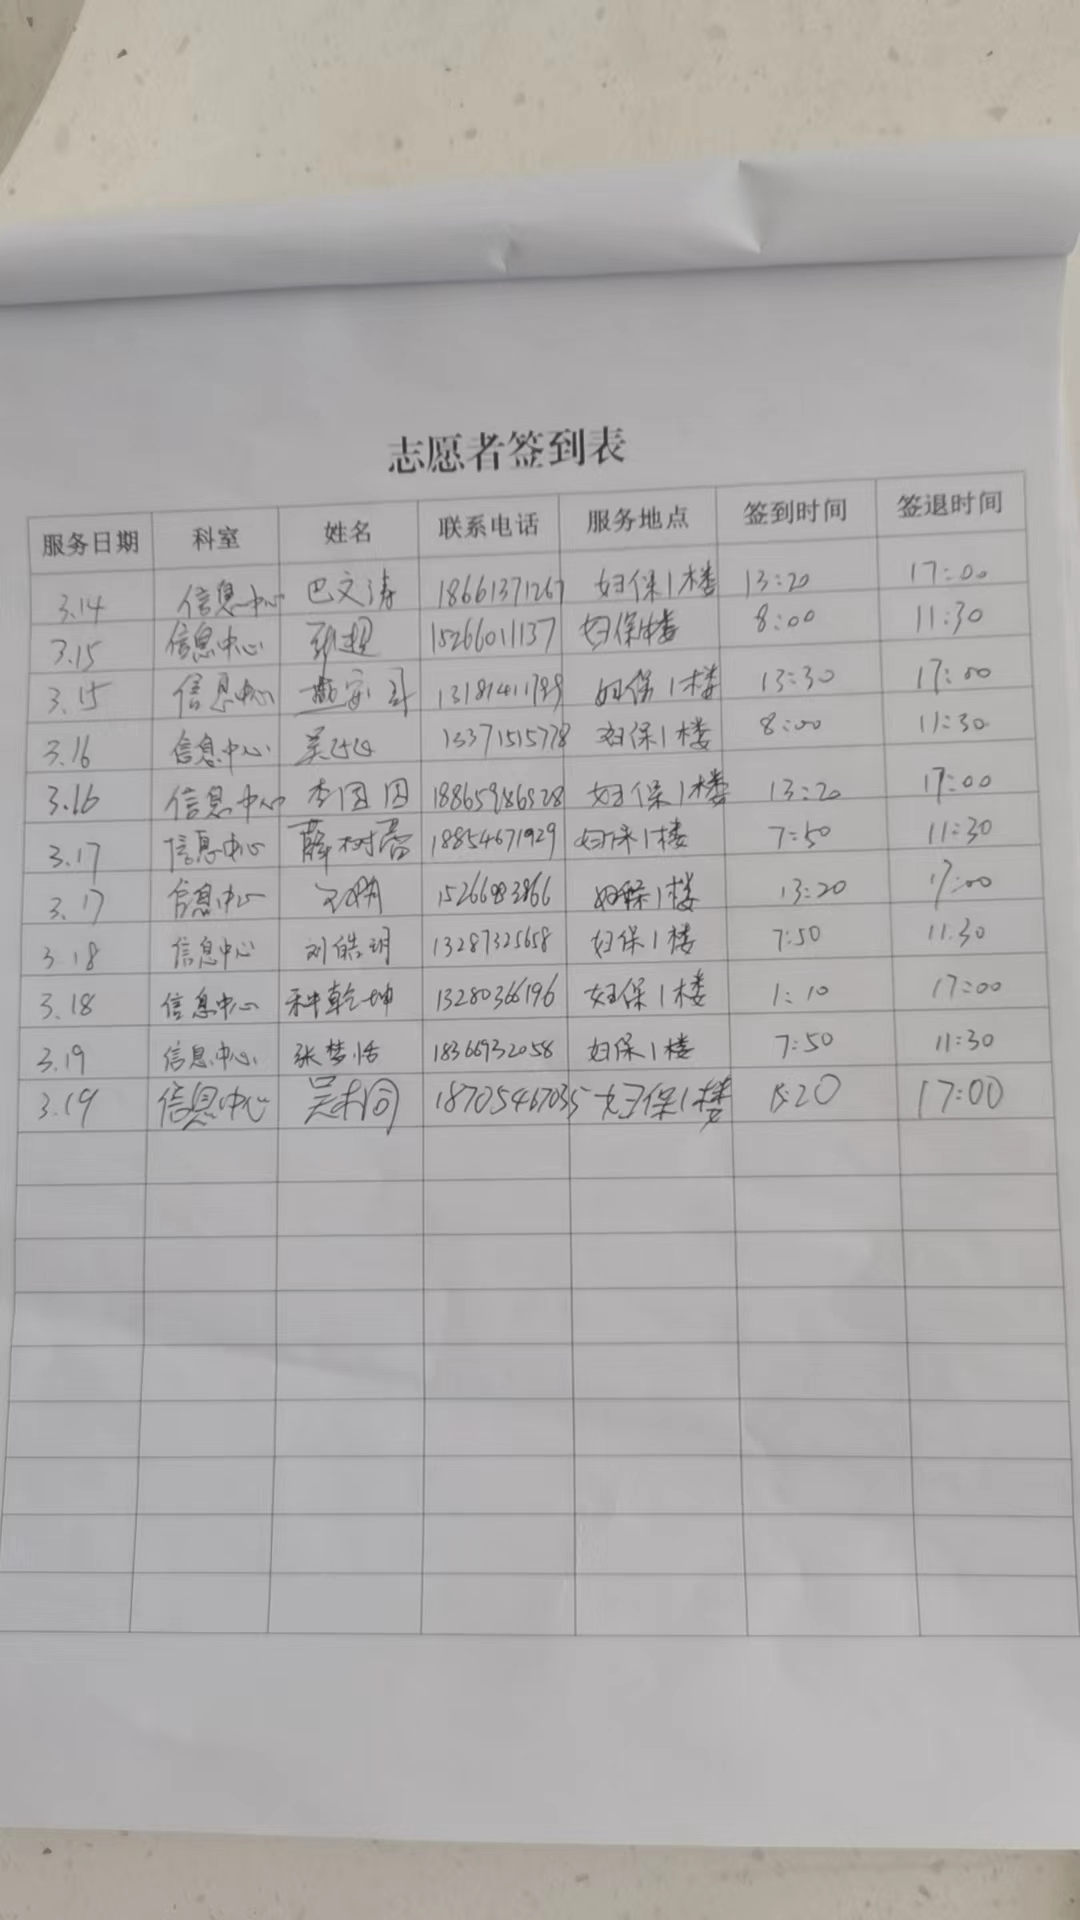 志愿者签到表
服务日期 科室 姓名 联系电话 服务地点 签到时间 签退时间
3.14 信息中心 巴文涛 18661371267 妇保1楼 13:20 17:00
3.15 信息中心 张超 15266011137 妇保1楼 8:00 11:30
3.15 信息中心 1318141178 妇保1楼 13:30 17:00
3.16 信息中心 吴 13371515778 妇保1楼 8:00 11:30
3.16 信息中心 李囡囡 18865986828 妇保1楼 13:20 17:00
3.17 信息中心 薛树蕾 18854671929 妇保1楼 7:50 11:30
3.17 信息中心 妇保1楼 13:20 17:00
3.18 信息中心 刘皓玥 13287325658 妇保1楼 7:50 11:30
3.18 信息中心 乾坤 13280366196 妇保1楼 1:10 17:00
3.19 信息中心 张梦恬 18366932058 妇保1楼 7:50 11:30
3.19 信息中心 吴同 18705467035 妇保1楼 17:00